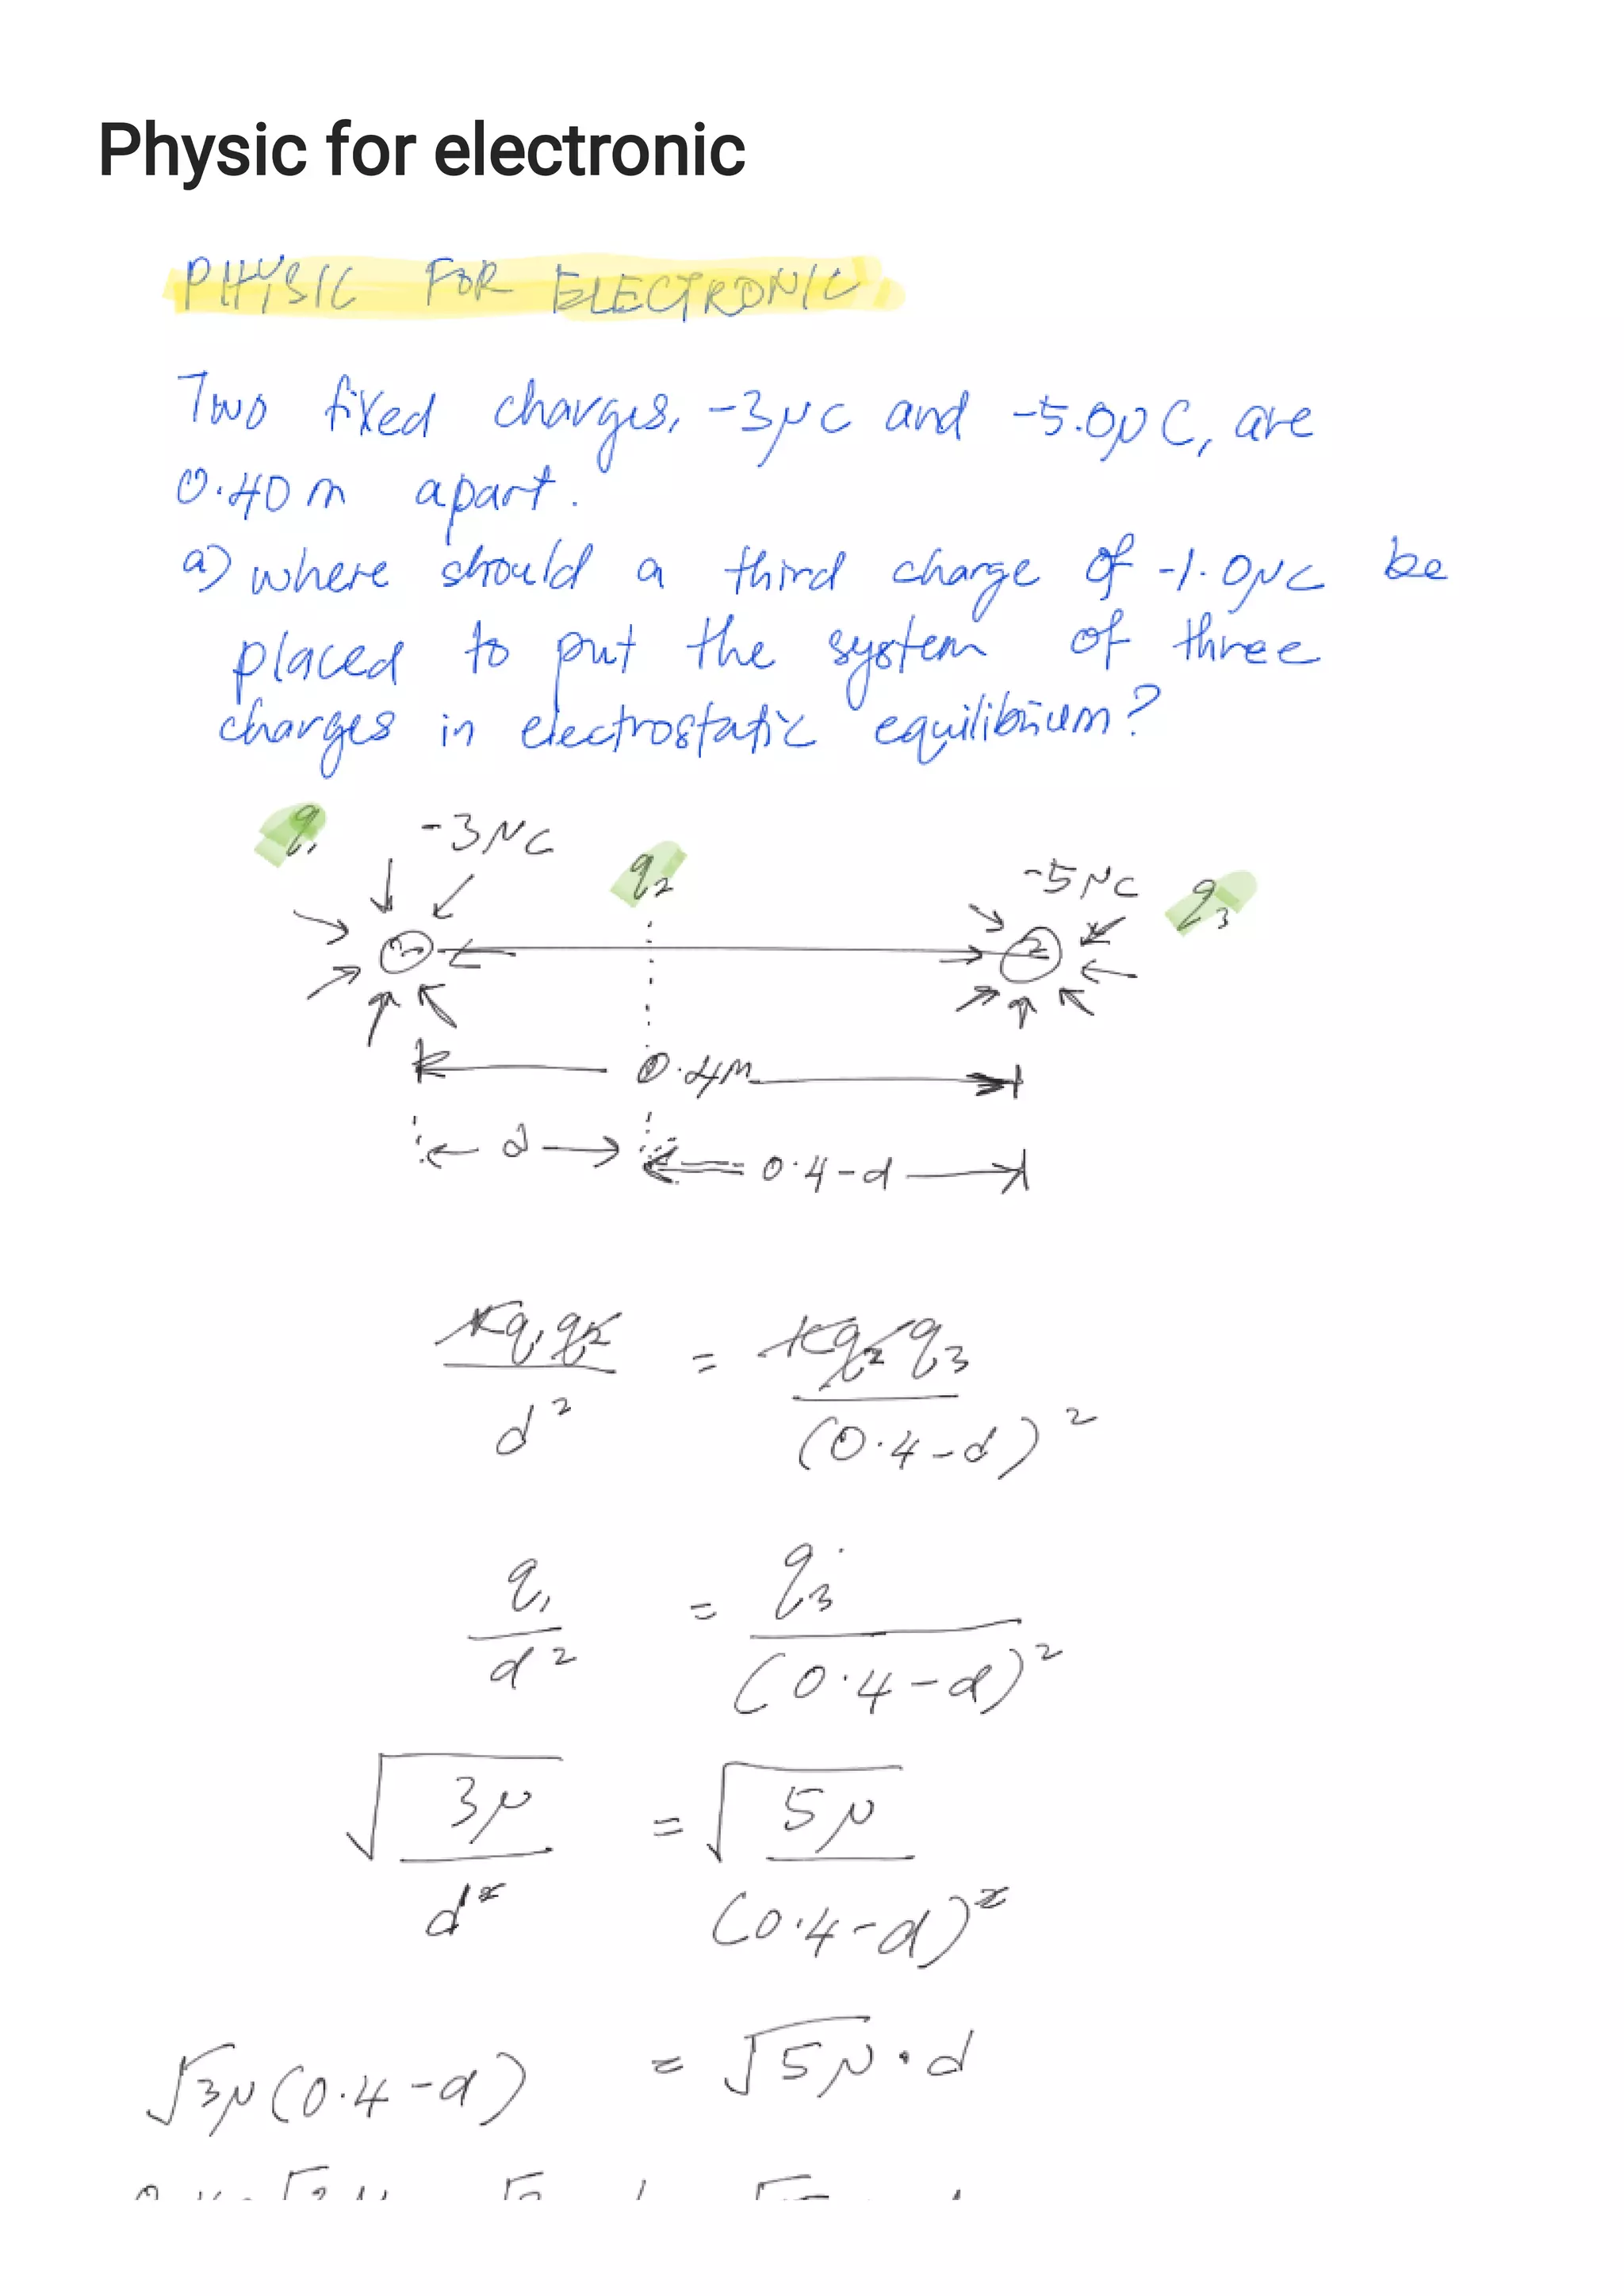 Physic for electronic
PHYSIC FOR ELECTRONIC
Two fixed charges, -3μC and -5.0μC, are
0.40 m apart.
a) where should a third charge of -1.0μC be
placed to put the system of three
charges in electrostatic equilibrium?
q1 -3μC q2 -5μC q3
0.4m
d 0.4-d
Kq1q2 = Kq2q3
d² (0.4-d)²
q1 = q3
d² (0.4-d)²
√3μ = √5μ
d² (0.4-d)²
√3μ(0.4-d) = √5μ·d